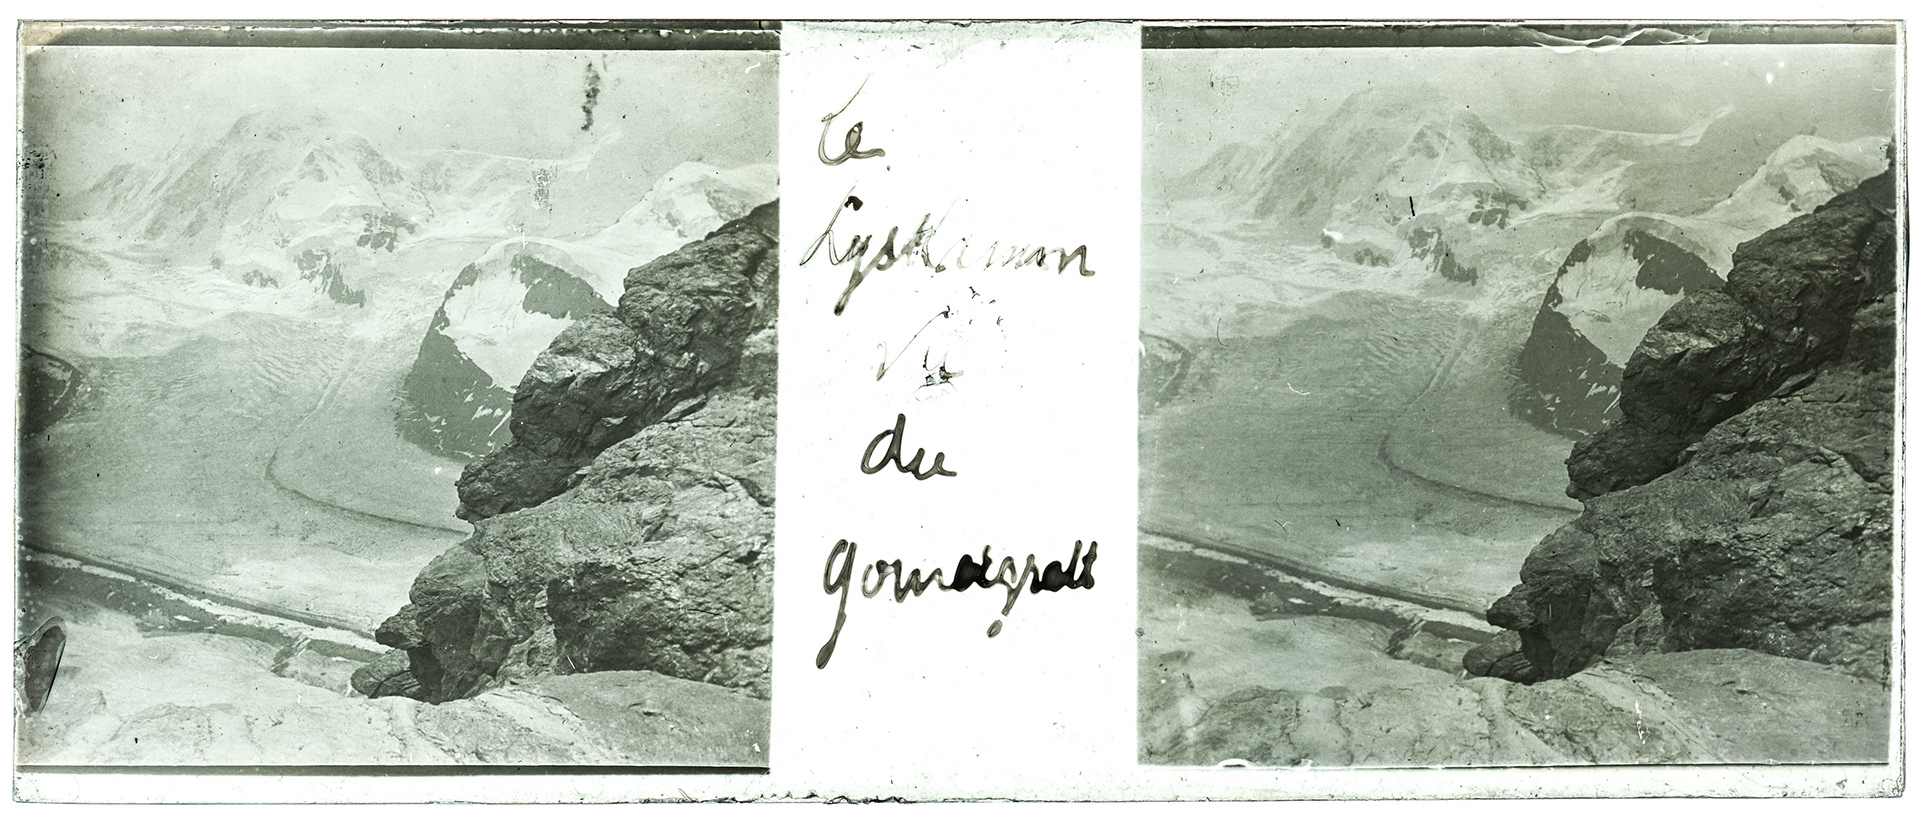 Le
Lyskamm
Vu
du
Gornergratt